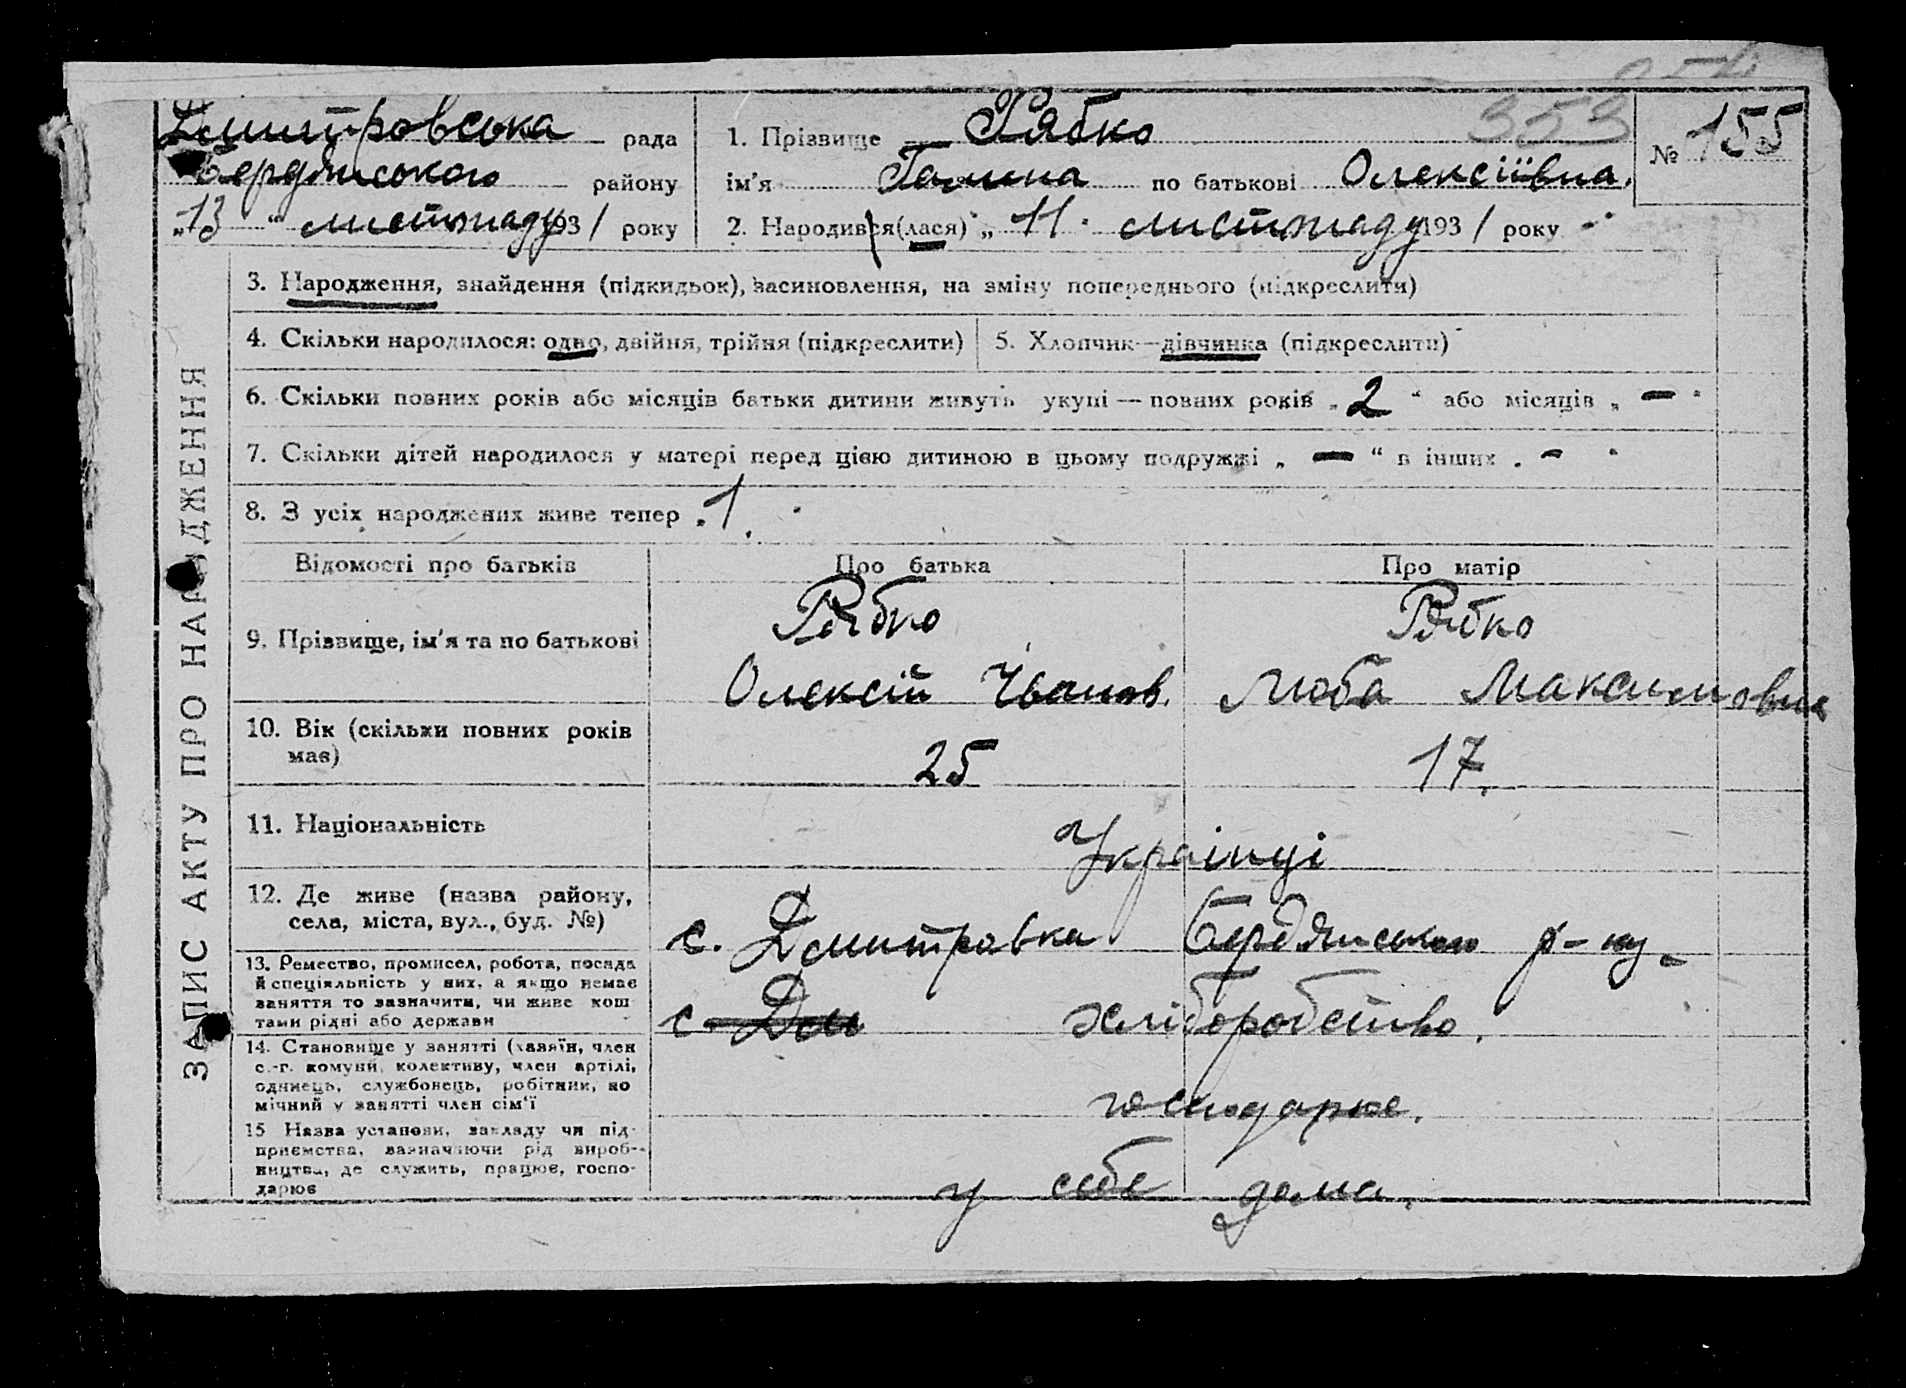 353
Дмитровська рада
Бердянського району
„13“ листопаду 1931 року
1. Прізвище Рябко
ім'я Галина по батькові Олексіївна.
2. Народився(лася) „11“ листопаду 1931 року
№ 155
ЗАПИС АКТУ ПРО НАРОДЖЕННЯ
3. Народження, знайдення (підкидьок), засиновлення, на зміну попереднього (підкреслити)
4. Скільки народилося: одно, двійня, трійня (підкреслити)
5. Хлопчик—дівчинка (підкреслити)
6. Скільки повних років або місяців батьки дитини живуть укупі — повних років „2“ або місяців „—“
7. Скільки дітей народилося у матері перед цією дитиною в цьому подружжі „—“ в інших „-“
8. З усіх народжених живе тепер „1“
Відомості про батьків Про батька Про матір
9. Прізвище, ім'я та по батькові
Рябко
Олексій Іванов.
Рябко
Люба Максимовна
10. Вік (скільки повних років
має)
25 17.
11. Національність
Українці
12. Де живе (назва району,
села, міста, вул., буд. №)
с. Дмитровка Бердянського р-ну
13. Ремество, промисел, робота, посада
й спеціяльність у них, а якщо немає
заняття то зазначити, чи живе кош
тами рідні або держави
с. Дм хліборобство.
14. Становище у занятті (хазяїн, член
с.-г. комуни, колективу, член артілі,
одинець, службонець, робітник, по
мічний у занятті член сім'ї
господарке.
15 Назва установи, закладу чи під-
приємства, зазначаючи рід вироб-
ництва, де служить, працює, госпо-
дарює
у себе дома.